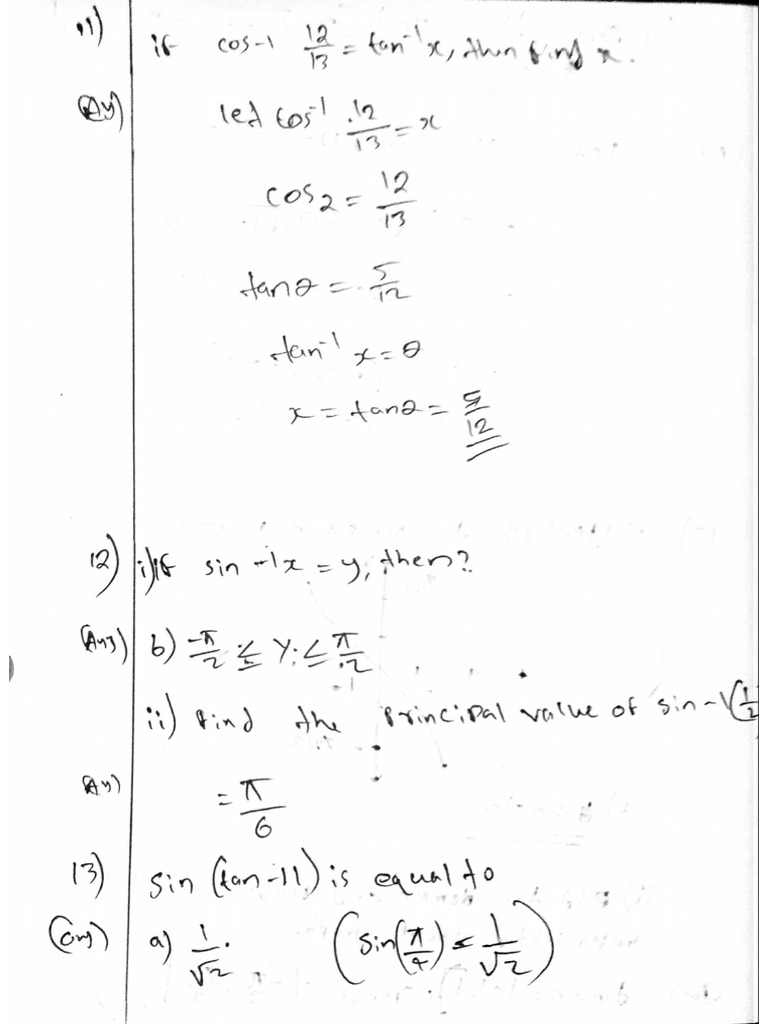 11) if cos-1 12/13 = tan⁻¹x, then find x.
Ans) let cos⁻¹ 12/13 = x
cos2 = 12/13
tanθ = 5/12
tan⁻¹ x = θ
x = tanθ = 5/12
12) i) if sin -1x = y, then?
Ans) b) -π/2 ≤ y ≤ π/2
ii) Find the principal value of sin-1(1/2
Ans) = π/6
13) sin (tan-11) is equal to
Ans) a) 1/√2. (sin(π/4) = 1/√2)